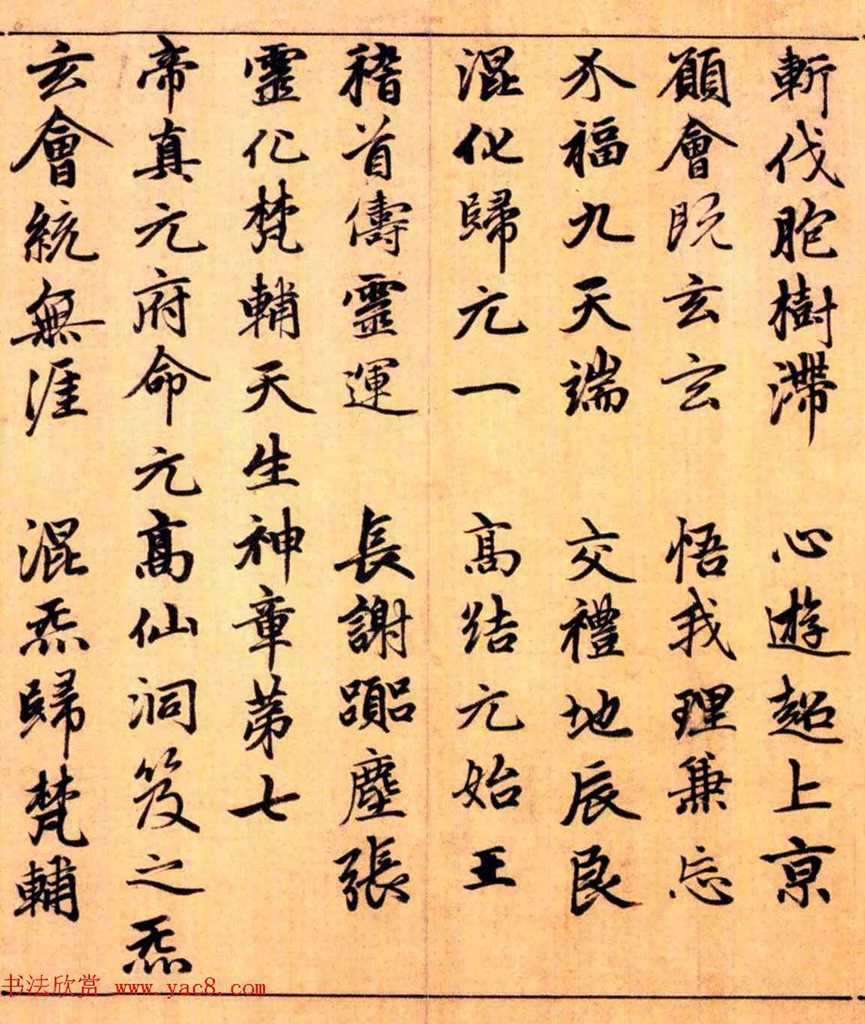 斬伐胞樹滯 心遊超上京
願會既玄玄 悟我理兼忘
介福九天端 交禮地辰良
混化歸元一 高結元始王
稽首儔靈運 長謝塵張
靈化梵輔天生神章第七
帝真元府命元高仙洞笈之炁
玄會統無涯 混炁歸梵輔
书法欣赏 www.yac8.com